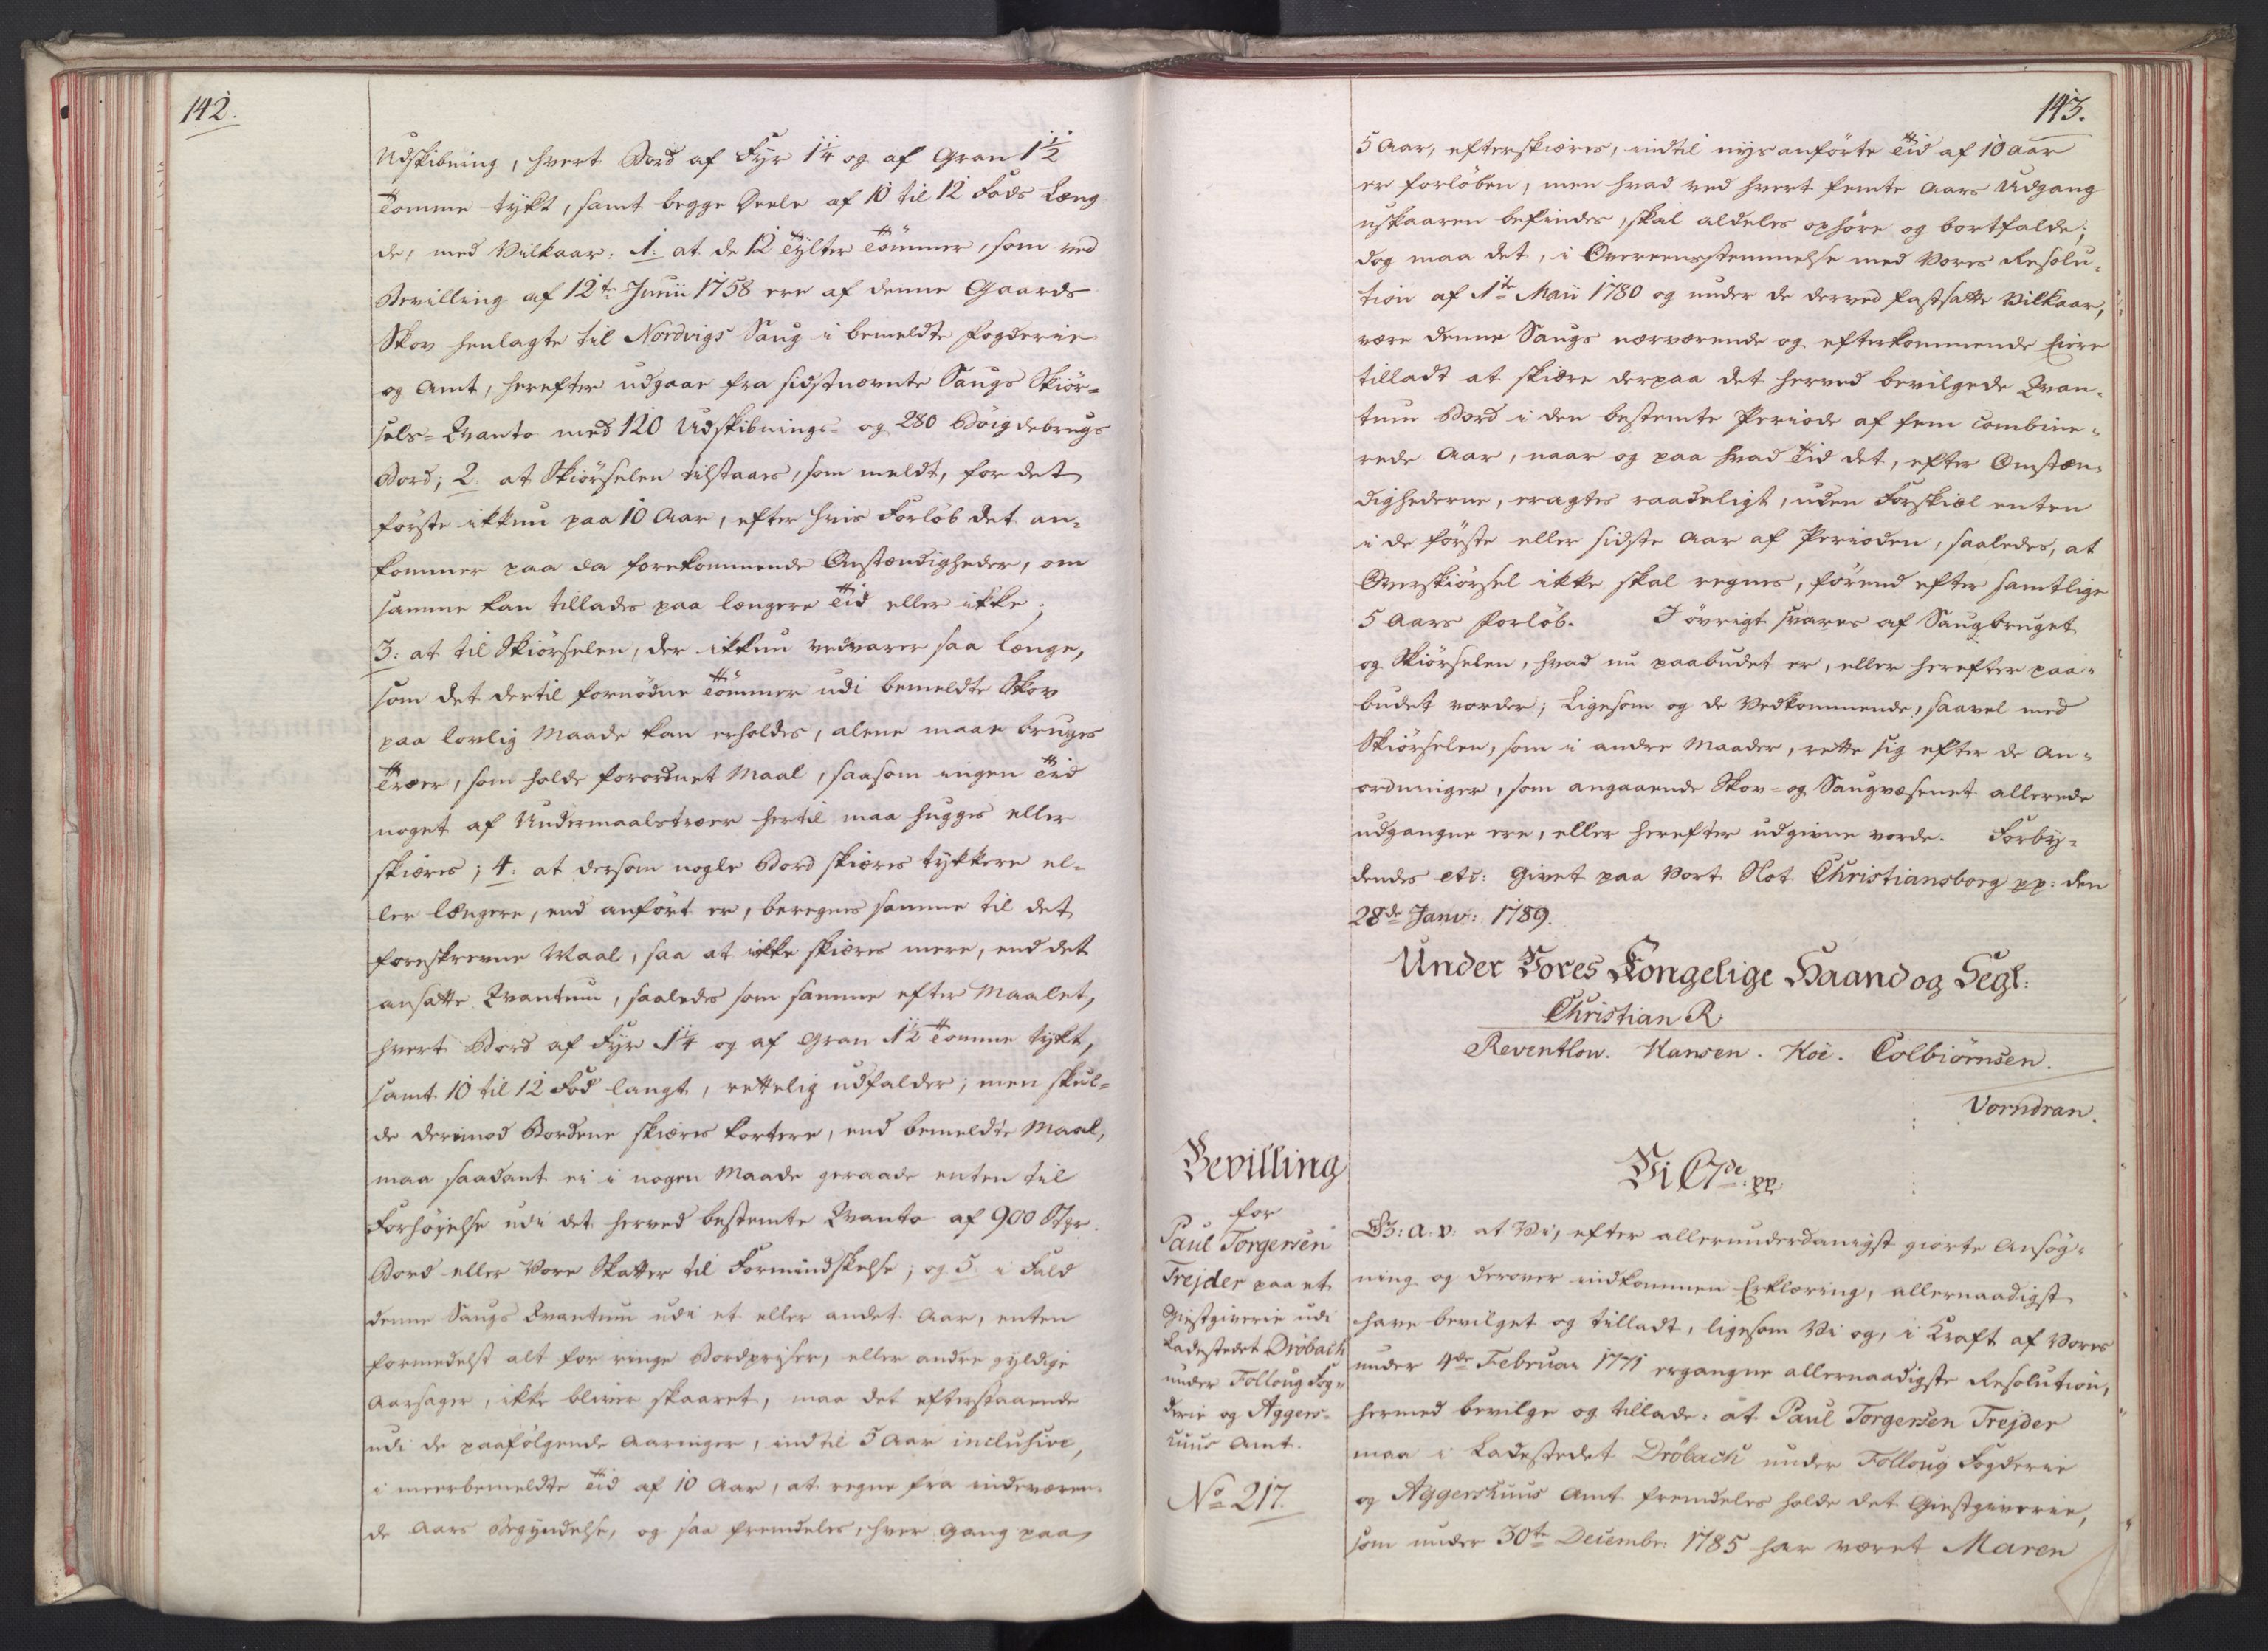 142.
Udskibning, hvert Bord af Fyr 1¼ og af Gran 1½
Tomme tykt, samt begge Deele af 10 til 12 Fods Læng
de, med Vilkaar: 1. at de 12 Tylter Tømmer, som ved
Bevilling af 12te Junii 1758 ere af denne Gaards
Skov henlagte til Nordvigs Saug i bemeldte Fogderie
og Amt, herefter udgaar fra sidstnævnte Saugs Skiør-
sels-Qvanto med 120 Udskibnings- og 280 Bøigdebrugs
Bord; 2. at Skiørselen tilstaaes, som meldt, for det
første ikkun paa 10 Aar, efter hvis Forløb det an-
kommer paa da forekommende Omstændigheder, om
samme kan tillades paa længere Tid eller ikke;
3: at til Skiørselen, der ikkun vedvarer saa længe,
som det dertil fornødne Tømmer udi bemeldte Skov
paa lovlig Maade kan erholdes, alene maae bruges
Træer, som holde forordnet Maal, saasom ingen Tid
noget af Undermaalstræer hertil maa hugges eller
skiæres; 4: at dersom nogle Bord skiæres tykkere el-
ler længere, end anført er, beregnes samme til det
foreskrevne Maal, saa at ikke skiæres mere, end det
ansatte Qvantum, saaledes som samme efter Maalet,
hvert Bord af Fyr 1¼ og af Gran 1½ Tomme tykt,
samt 10 til 12 Fod langt, rettelig udfalder; men skul-
de derimod Bordene skiæres kortere, end bemeldte Maal,
maa saadant ei i nogen Maade geraade enten til
Forhøjelse udi det herved bestemte Qvanto af 900 Stpr.
Bord eller Vore Skatter til Formindskelse; og 5. i Fald
denne Saugs Qvantum udi et eller andet Aar, enten
formedelst alt for ringe Bordpriser, eller andre gyldige
Aarsager, ikke bliver skaaret, maa det efterstaaende
udi de paafølgende Aaringer, indtil 5 Aar inclusive,
i meerbemeldte Tid af 10 Aar, at regne fra indeværen-
de Aars Begyndelse, og saa fremdeles, hver Gang paa
143.
5 Aar, efterskiæres, indtil nys anførte Tid af 10 Aar
er forløben, men hvad ved hvert femte Aars Udgang
uskaaren befindes, skal aldeles ophøre og bortfalde;
dog maa det, i Overeensstemmelse med Vores Resolu-
tion af 1te Maii 1780 og under de derved fastsatte Vilkaar,
være denne Saugs nærværende og efterkommende Eiere
tilladt at skiære derpaa det herved bevilgede Qvan-
tum Bord i den bestemte Periode af fem combine-
rede Aar, naar og paa hvad Tid det, efter Omstæn-
dighederne, eragtes raadeligt, uden Forskiæl enten
i de første eller sidste Aar af Perioden, saaledes, at
Overskiørsel ikke skal regnes, førend efter samtlige
5 Aars Forløb. I øvrigt svares af Saugbruget
og Skiørselen, hvad nu paabudet er, eller herefter paa-
budet vorder; Ligesom og de Vedkommende, saavel med
Skiørselen, som i andre Maader, rette sig efter de An-
ordninger, som angaaende Skov- og Saugvæsenet allerede
udgangne ere, eller herefter udgivne vorde. Forby-
dendes etc: Givet paa Vort Slot Christiansborg pp: den
28de Janv: 1789.
Under Vores Kongelige Haand og Segl:
Christian R
Reventlow. Hansen. Koë. Colbiørnsen.
Vorndran.
Bevilling
for
Paul Torgersen
Trejder paa et
Giestgiverie udi
Ladestedet Drøbach
under Folloug Fog-
derie og Aggers-
huus Amt.
No 217.
Vi C 7de: pp:
G: a. v: at Vi, efter allerunderdanigst giorte Ansøg-
ning og derover indkommen Erklæring, allernaadigst
have bevilget og tilladt, ligesom Vi og, i Kraft af Vores
under 4de Februar 1771 ergangne allernaadigste Resolution,
hermed bevilge og tillade: at Paul Torgersen Trejder
maa i Ladestedet Drøbach under Folloug Fogderie
og Aggershuus Amt fremdeles holde det Giestgiverie,
som under 30te Decembr: 1785 har været Maren